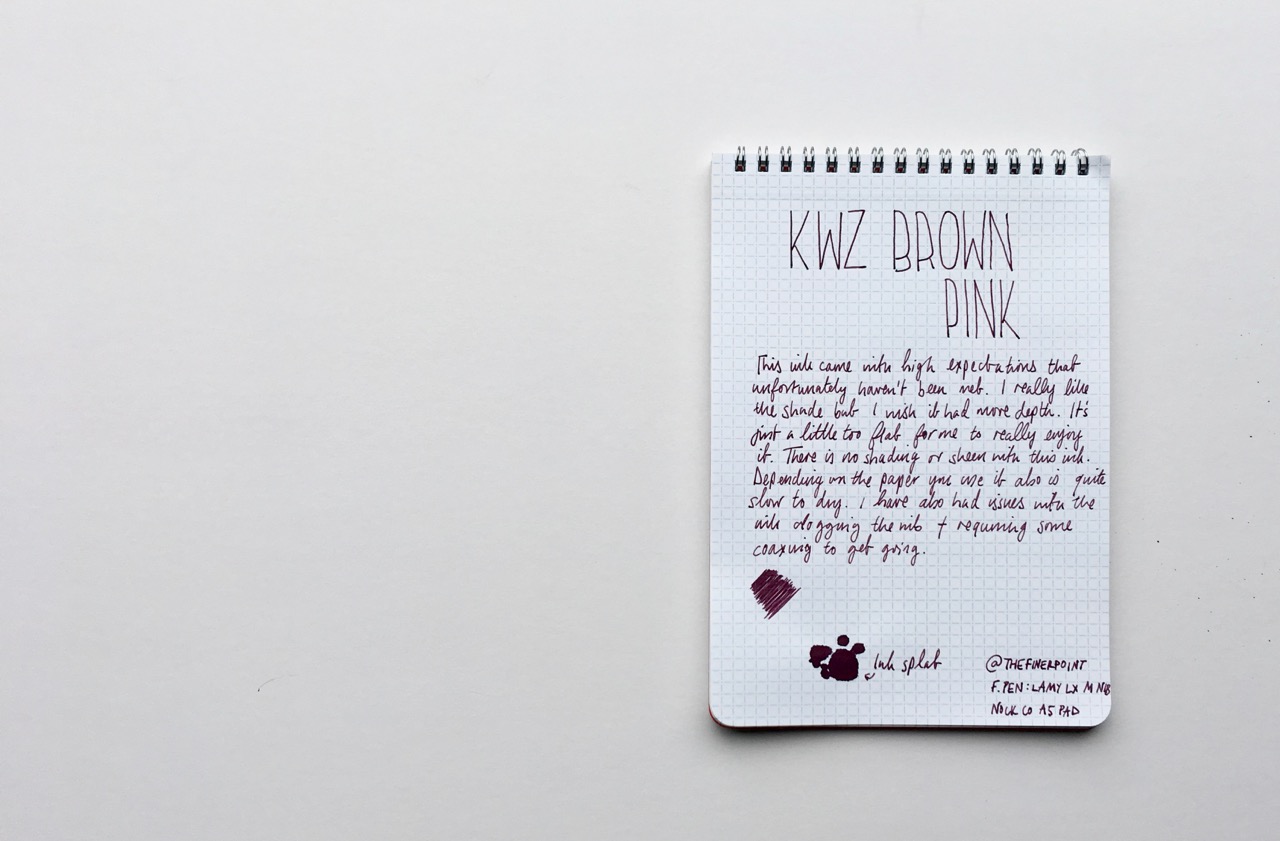 KWZ BROWN
PINK
This ink came with high expectations that
unfortunately haven't been met. I really like
the shade but I wish it had more depth. It's
just a little too flat for me to really enjoy
it. There is no shading or sheen with this ink.
Depending on the paper you use it also is quite
slow to dry. I have also had issues with the
ink clogging the nib + requiring some
coaxing to get going.
Ink splat
@THEFINERPOINT
F.PEN: LAMY LX M NIB
NOCK CO A5 PAD